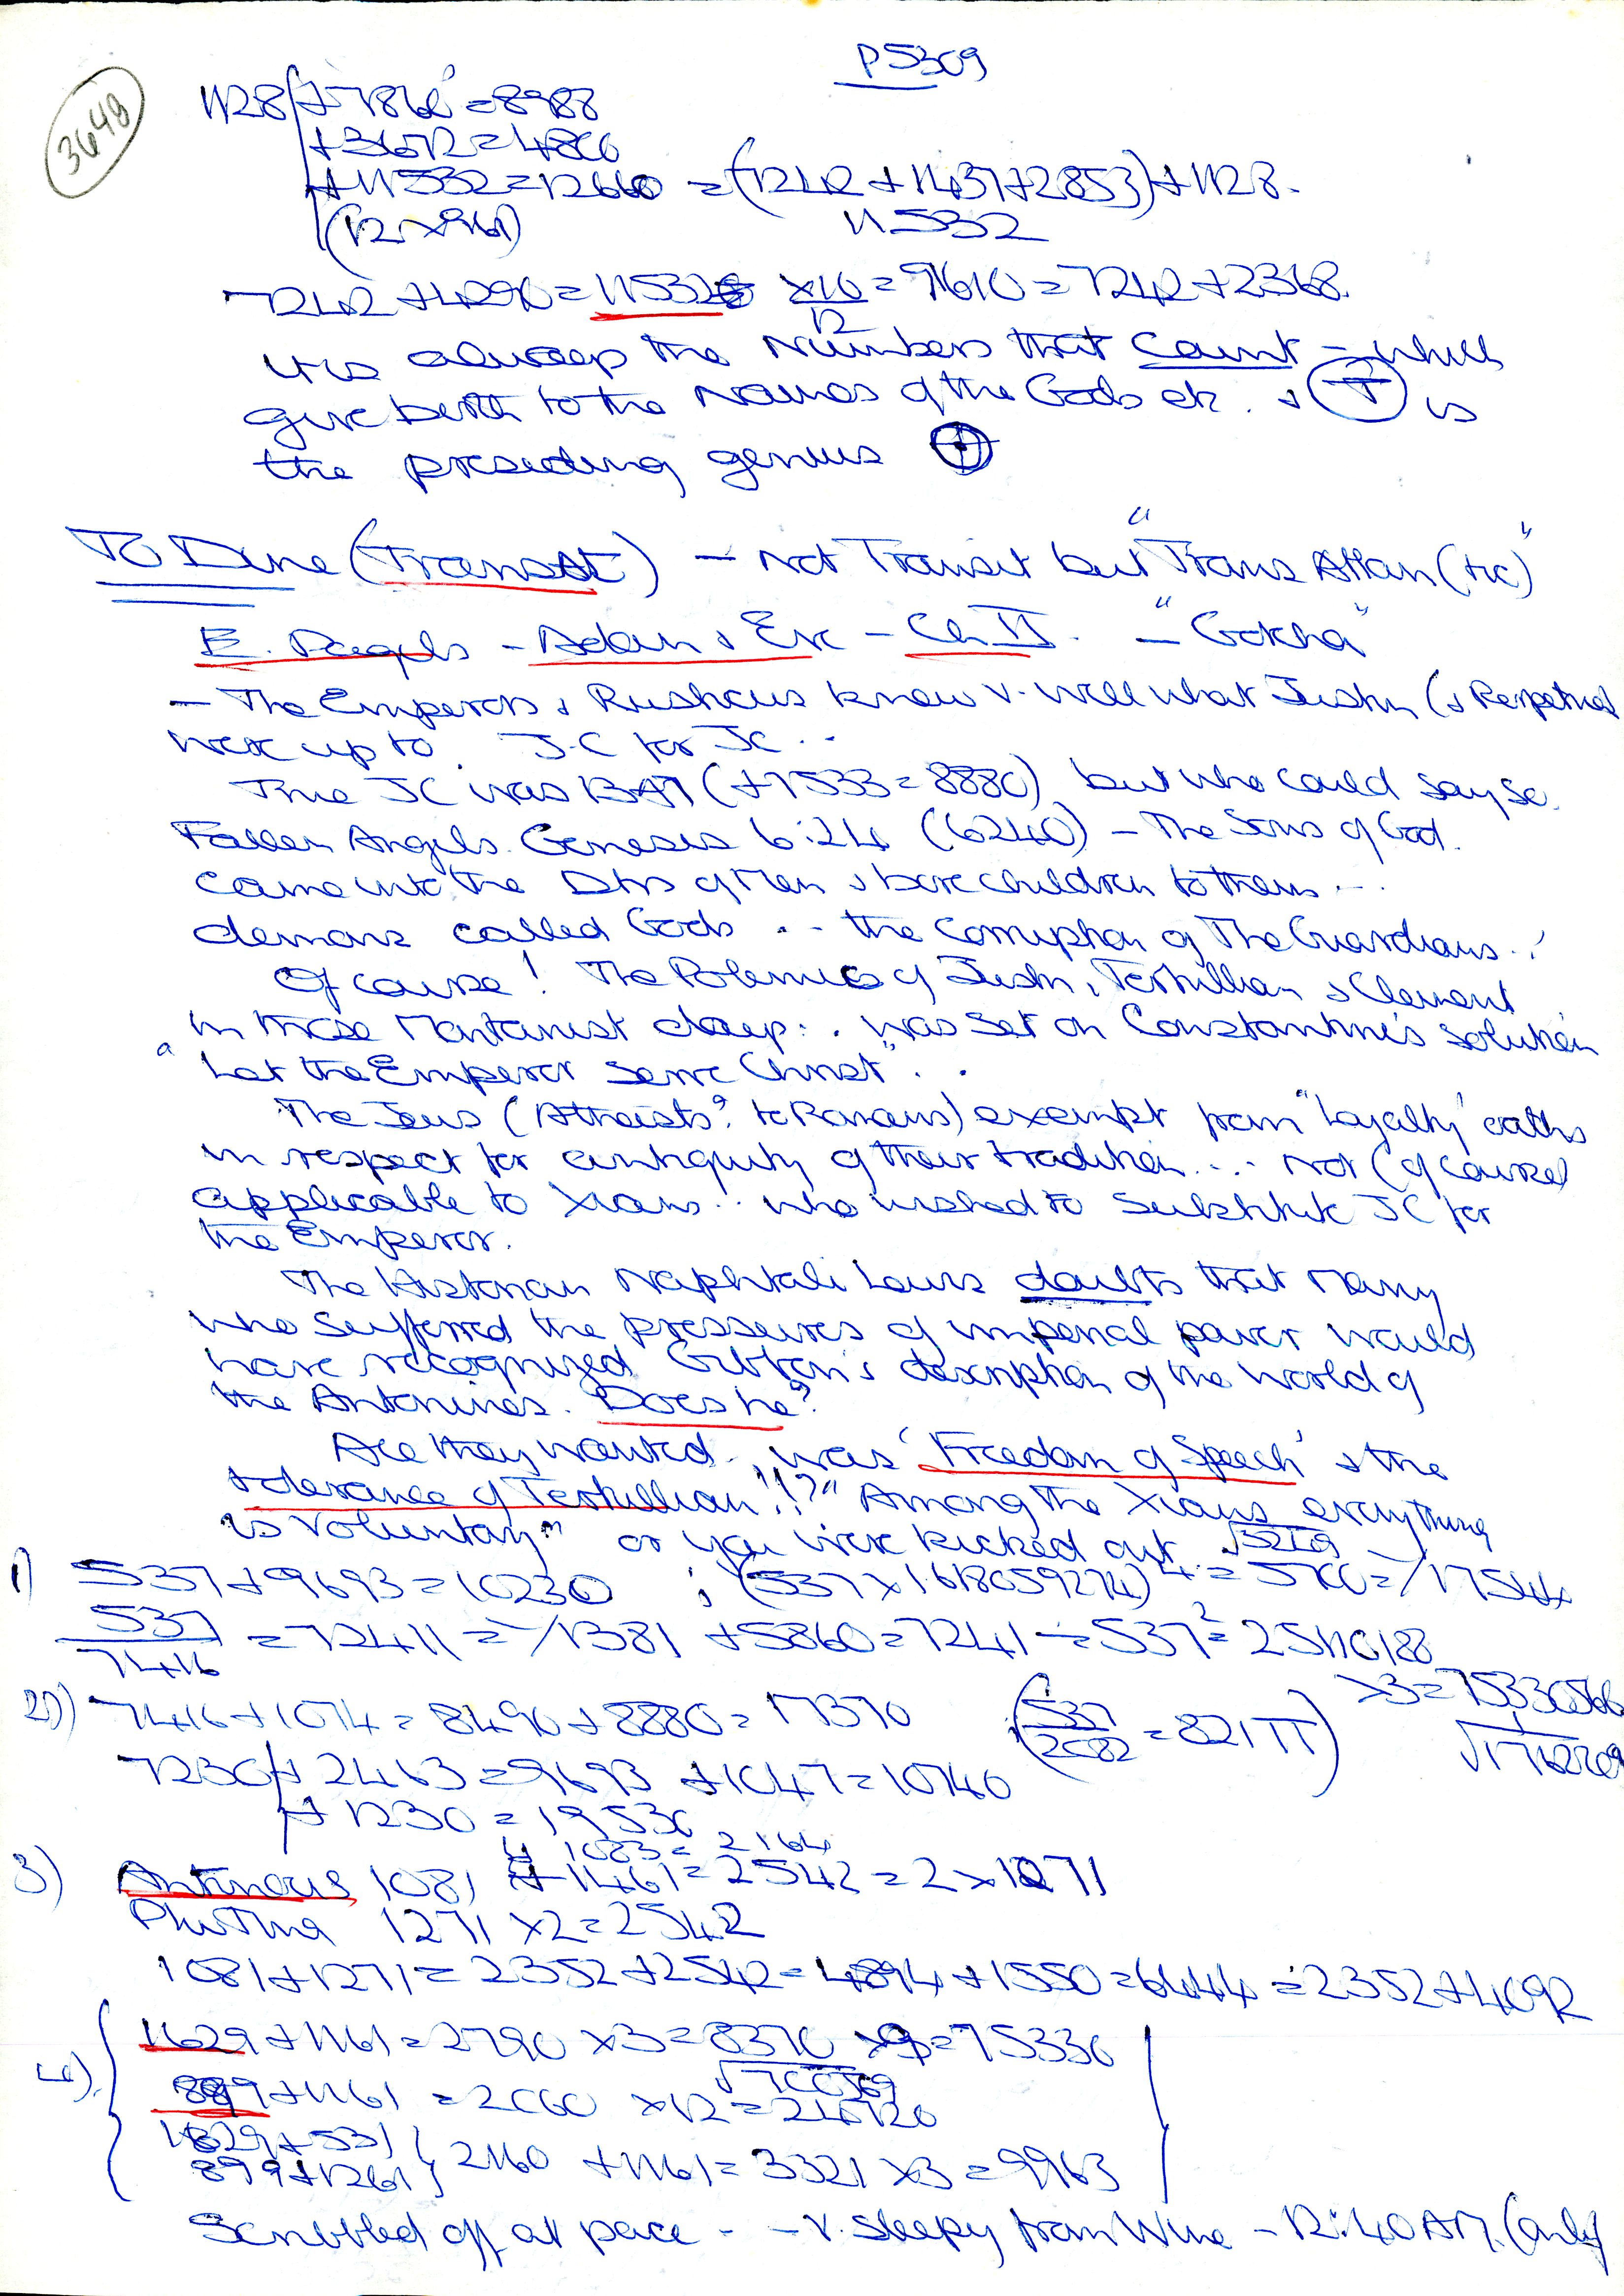 P5309
3648
1128 + 7860 = 8988
+ 3672 = 4800
+ 11532 = 12660 = (7242 + 1437 + 2853) + 1128.
(12 × 961) 11532
7242 + 4290 = 11532 × 10/12 = 9610 = 7242 + 2368.
It is always the Numbers that Count - which
give birth to the Names of the Gods etc. & T is
the presiding genius
To Dine (Transat) - not Transit but "Trans Atlan(tic)"
E. Pagels - Adam & Eve - Ch II. - "Gotcha"
- The Emperors & Rusticus knew v. well what Justin (& Perpetua)
were up to. J-C for JC..
True JC was (+ 7533 = 8880) but who could say so.
Fallen Angels. Genesis 6:24 (6240) - The Sons of God.
came into the Dtrs of Men & bore children to them...
demons called Gods .. the Corruption of The Guardians..!
Of course! The Polemics of Justin, Tertullian & Clement
in those Montanist days.. was set on Constantine's solution
"Let the Emperor serve Christ"..
The Jews (Atheists? to Romans) exempt from "Loyalty" oaths
in respect for antiquity of their tradition.... not (of course)
applicable to Xians.. who wished to substitute JC for
the Emperor.
The Historian Naphtali Lewis doubts that Many
who suffered the pressures of imperial power would
have recognized Gibbon's description of the World of
the Antonines. Does he?
All they wanted was 'Freedom of Speech' & the
tolerance of Tertullian!!?" Among the Xians everything
is voluntary" or you were kicked out.
1) 537 + 9693 = 10230 ; (537 × 1.618059274)
537/7416 = 72411 = 1/1381 + 5860 = 7241 - 537² =
2) 7416 + 1074 = 8490 + 8880 = 17370 (537/2082 = 821π) ×3 =
7230 + 2463 = 9693 + 1047 = 10740
+ 1230 =
1083 = 2164
3) Antinous 1081 + 1461 = 2542 = 2 × 1271
1271 × 2 = 2542
1081 + 1271 = 2352 + 2542 = 4894 + 1550 = 6444 = 2352 + 4092
4) 1629 + 1161 = 2790 × 3 = 8370 × 9 = 75330
899 + 1161 = 2060 × 12 =
1629 + 531
899 + 1261 } 2160 + 1161 = 3321 × 3 = 9963
Scribbled off at pace - - v. sleepy from Wine - 12:40 AM. (only